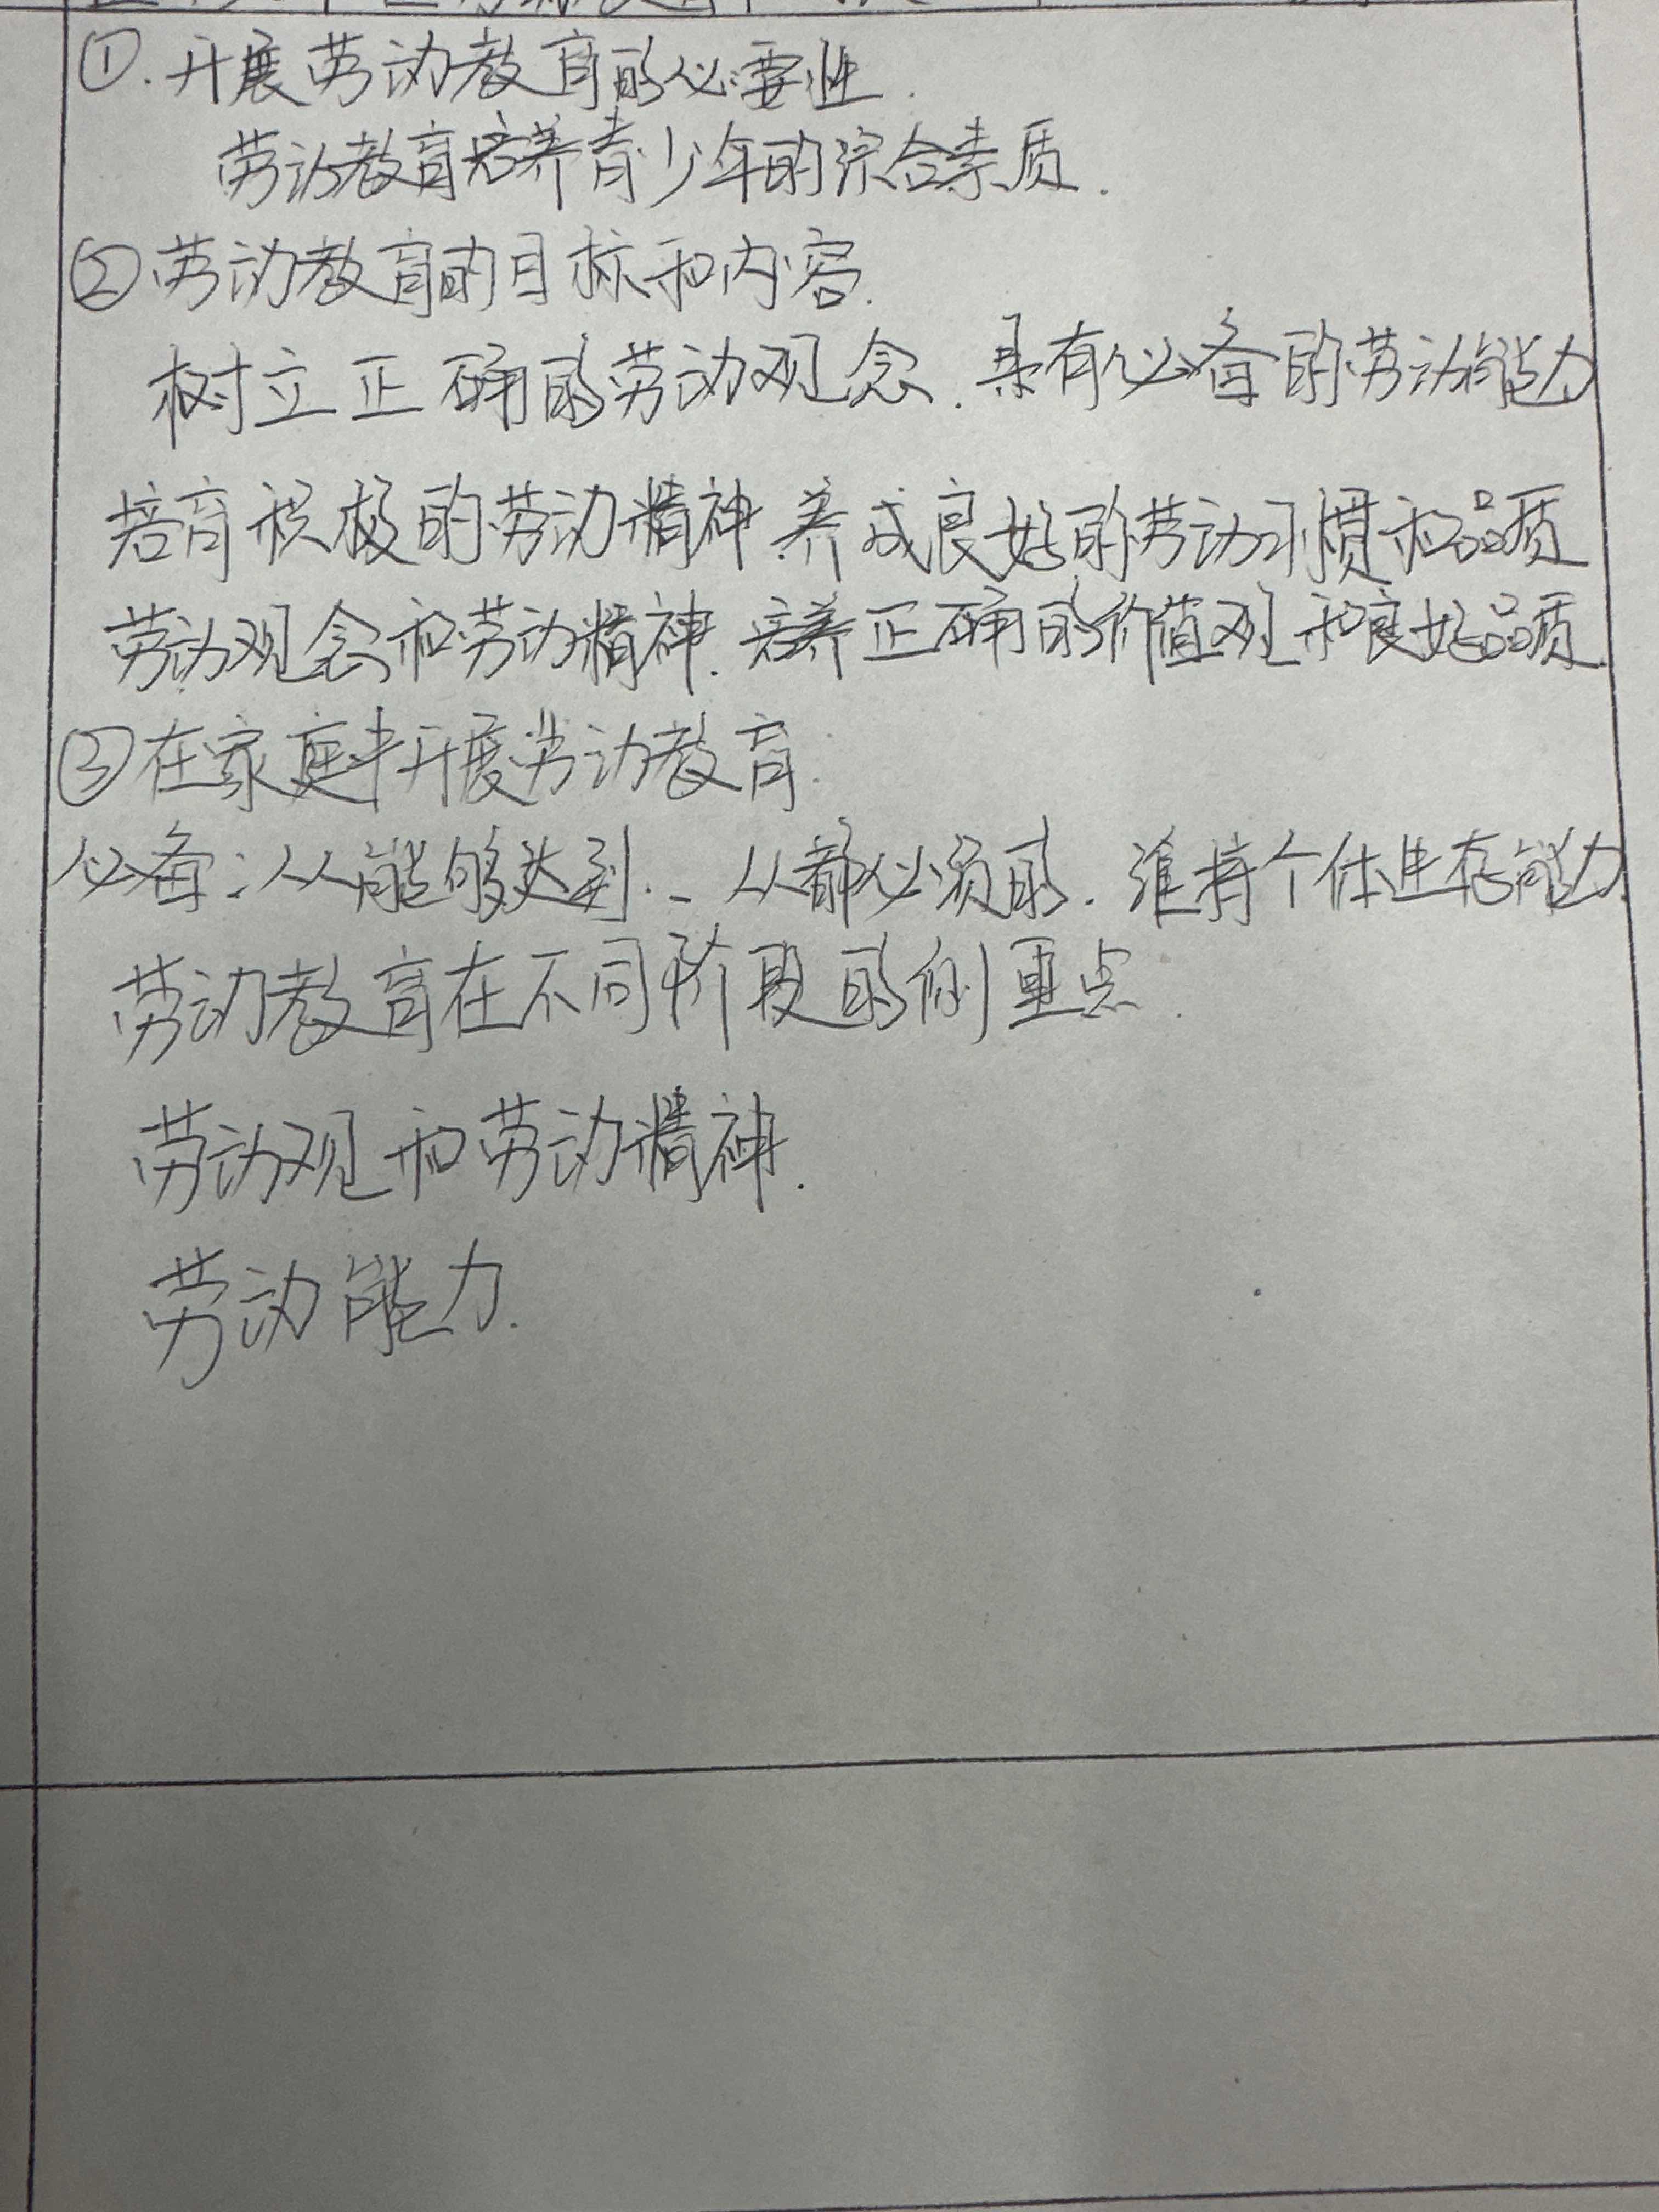 ①.开展劳动教育的必要性.
劳动教育培养青少年的综合素质.
②劳动教育的目标和内容.
树立正确的劳动观念.具有必备的劳动能力
培育积极的劳动精神.养成良好的劳动习惯和品质
劳动观念和劳动精神.培养正确的价值观和良好品质.
③在家庭中开展劳动教育.
必备:人人能够达到..人人都必须的.维持个体生存能力.
劳动教育在不同阶段的侧重点.
劳动观和劳动精神.
劳动能力.